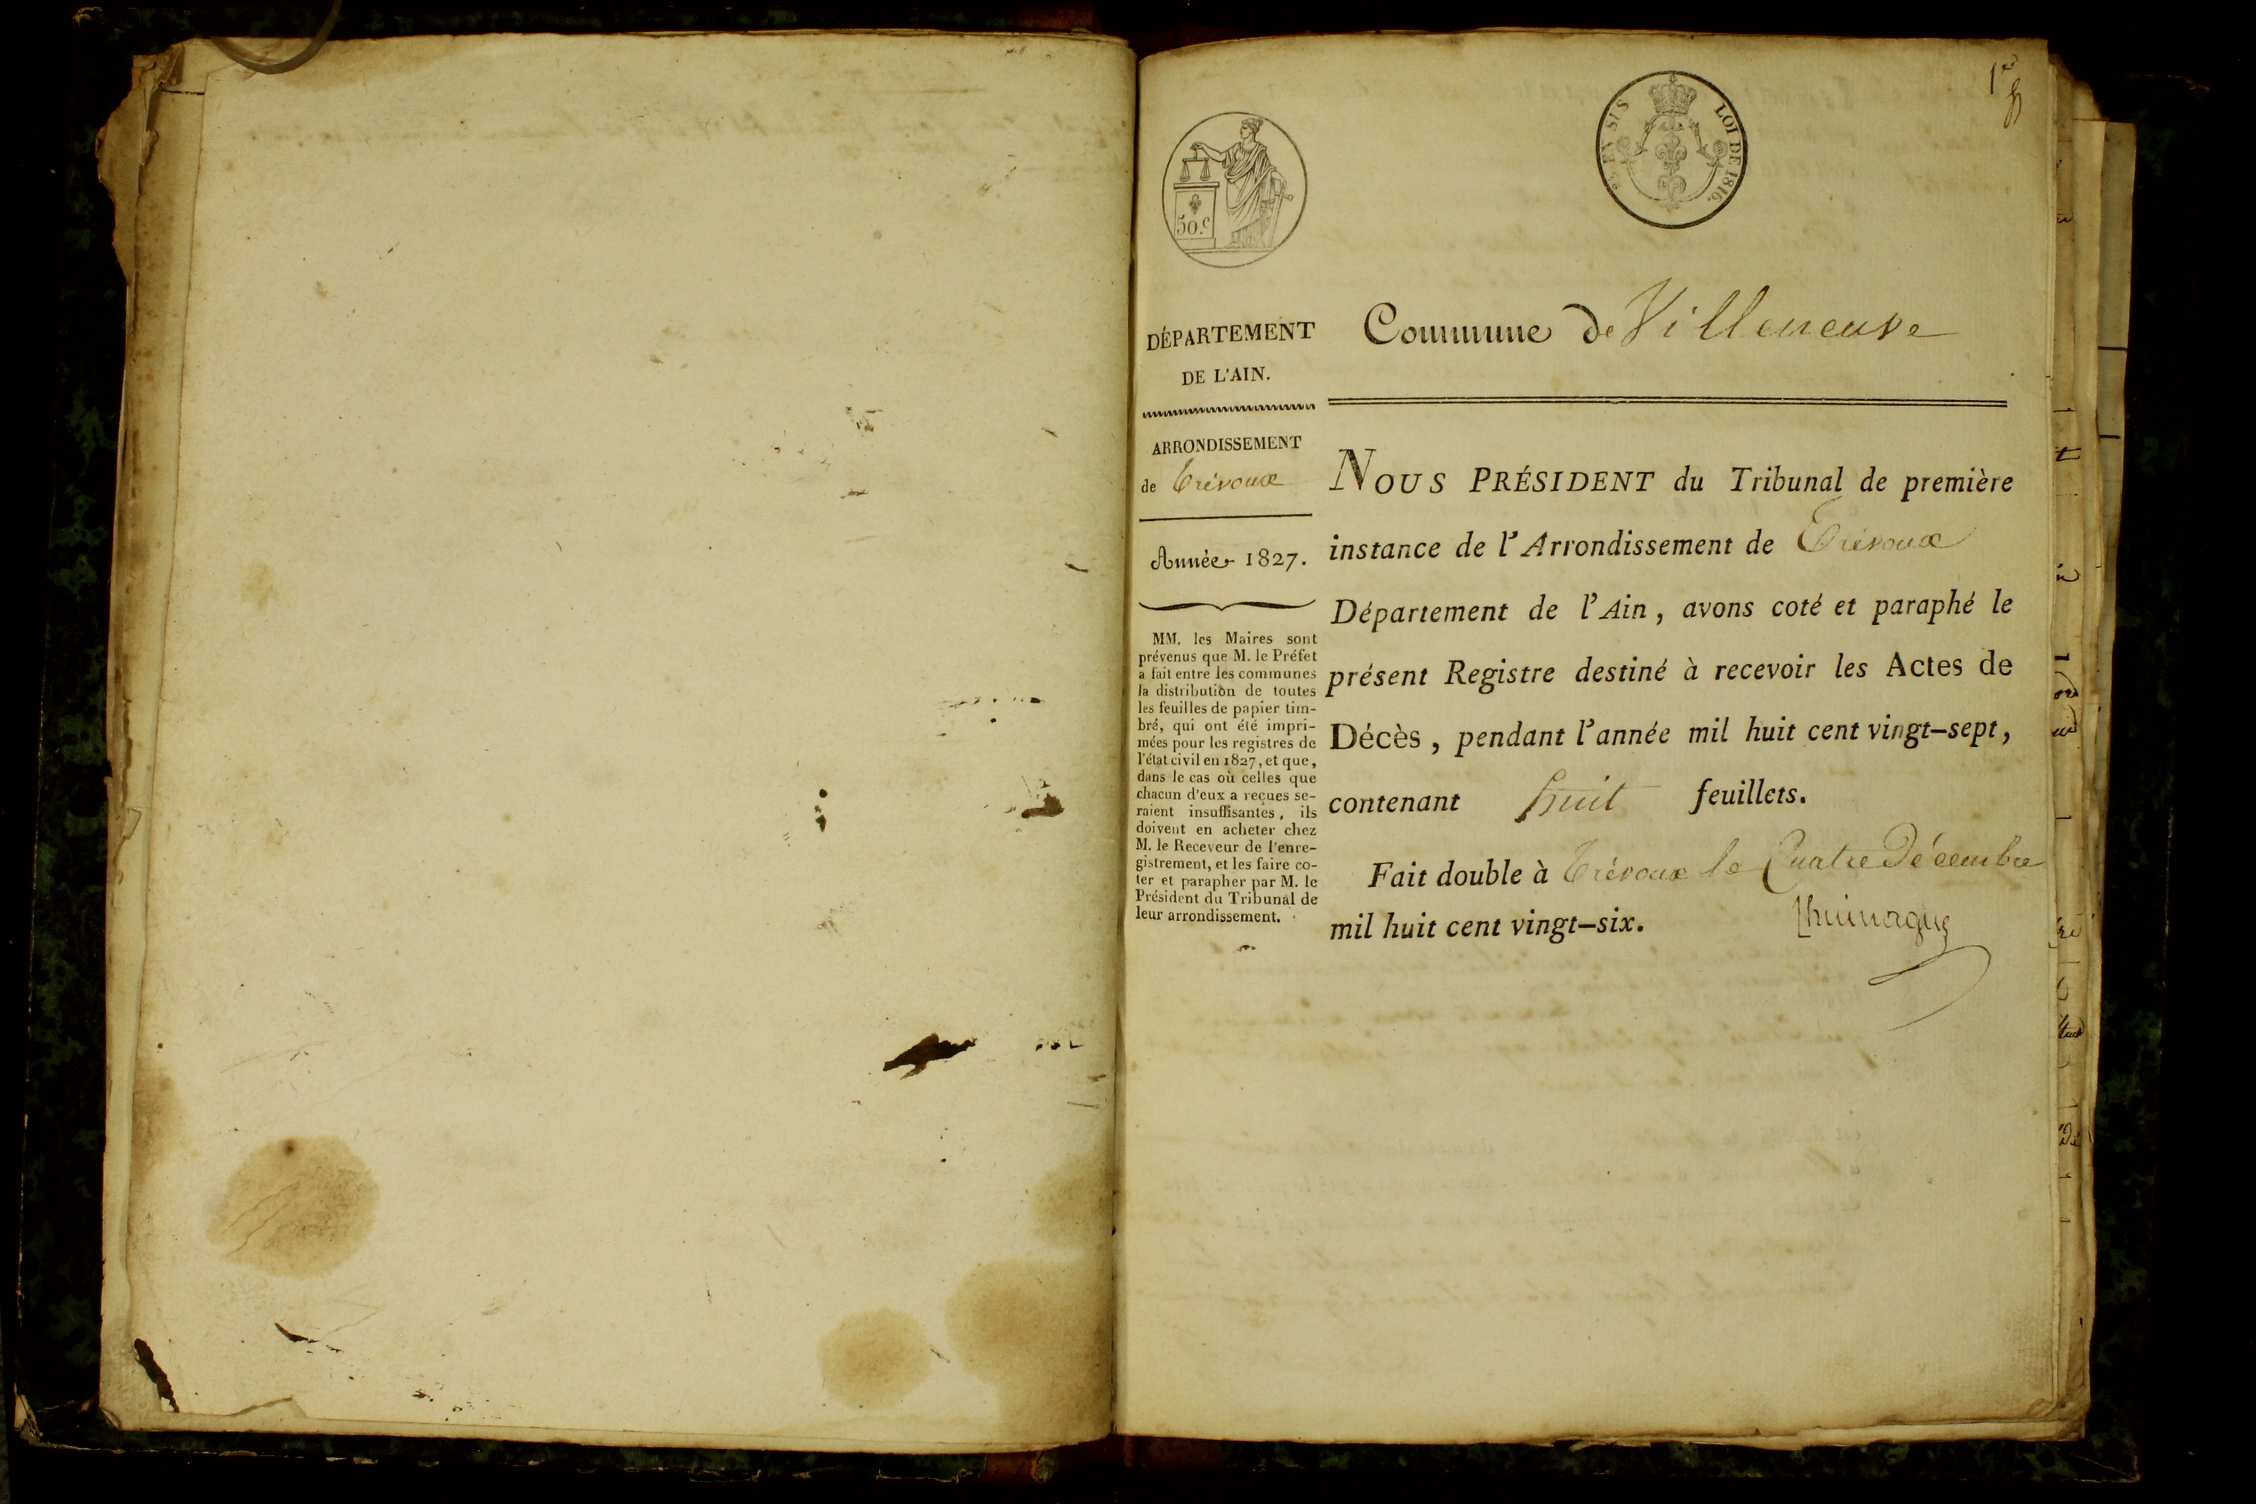 1er
8
EN SUS
LOI DE 1816.
50.c
DÉPARTEMENT
DE L'AIN.
ARRONDISSEMENT
de Trévoux
Année 1827.
MM. les Maires sont
prévenus que M. le Préfet
a fait entre les communes
la distribution de toutes
les feuilles de papier tim-
bré, qui ont été impri-
mées pour les registres de
l'état civil en 1827, et que,
dans le cas où celles que
chacun d'eux a reçues se-
raient insuffisantes, ils
doivent en acheter chez
M. le Receveur de l'enre-
gistrement, et les faire co-
ter et parapher par M. le
Président du Tribunal de
leur arrondissement.
Commune de Villeneuve
NOUS PRÉSIDENT du Tribunal de première
instance de l'Arrondissement de Trévoux
Département de l'Ain, avons coté et paraphé le
présent Registre destiné à recevoir les Actes de
Décès, pendant l'année mil huit cent vingt-sept,
contenant huit feuillets.
Fait double à Trévoux le Quatre Décembre
mil huit cent vingt-six.